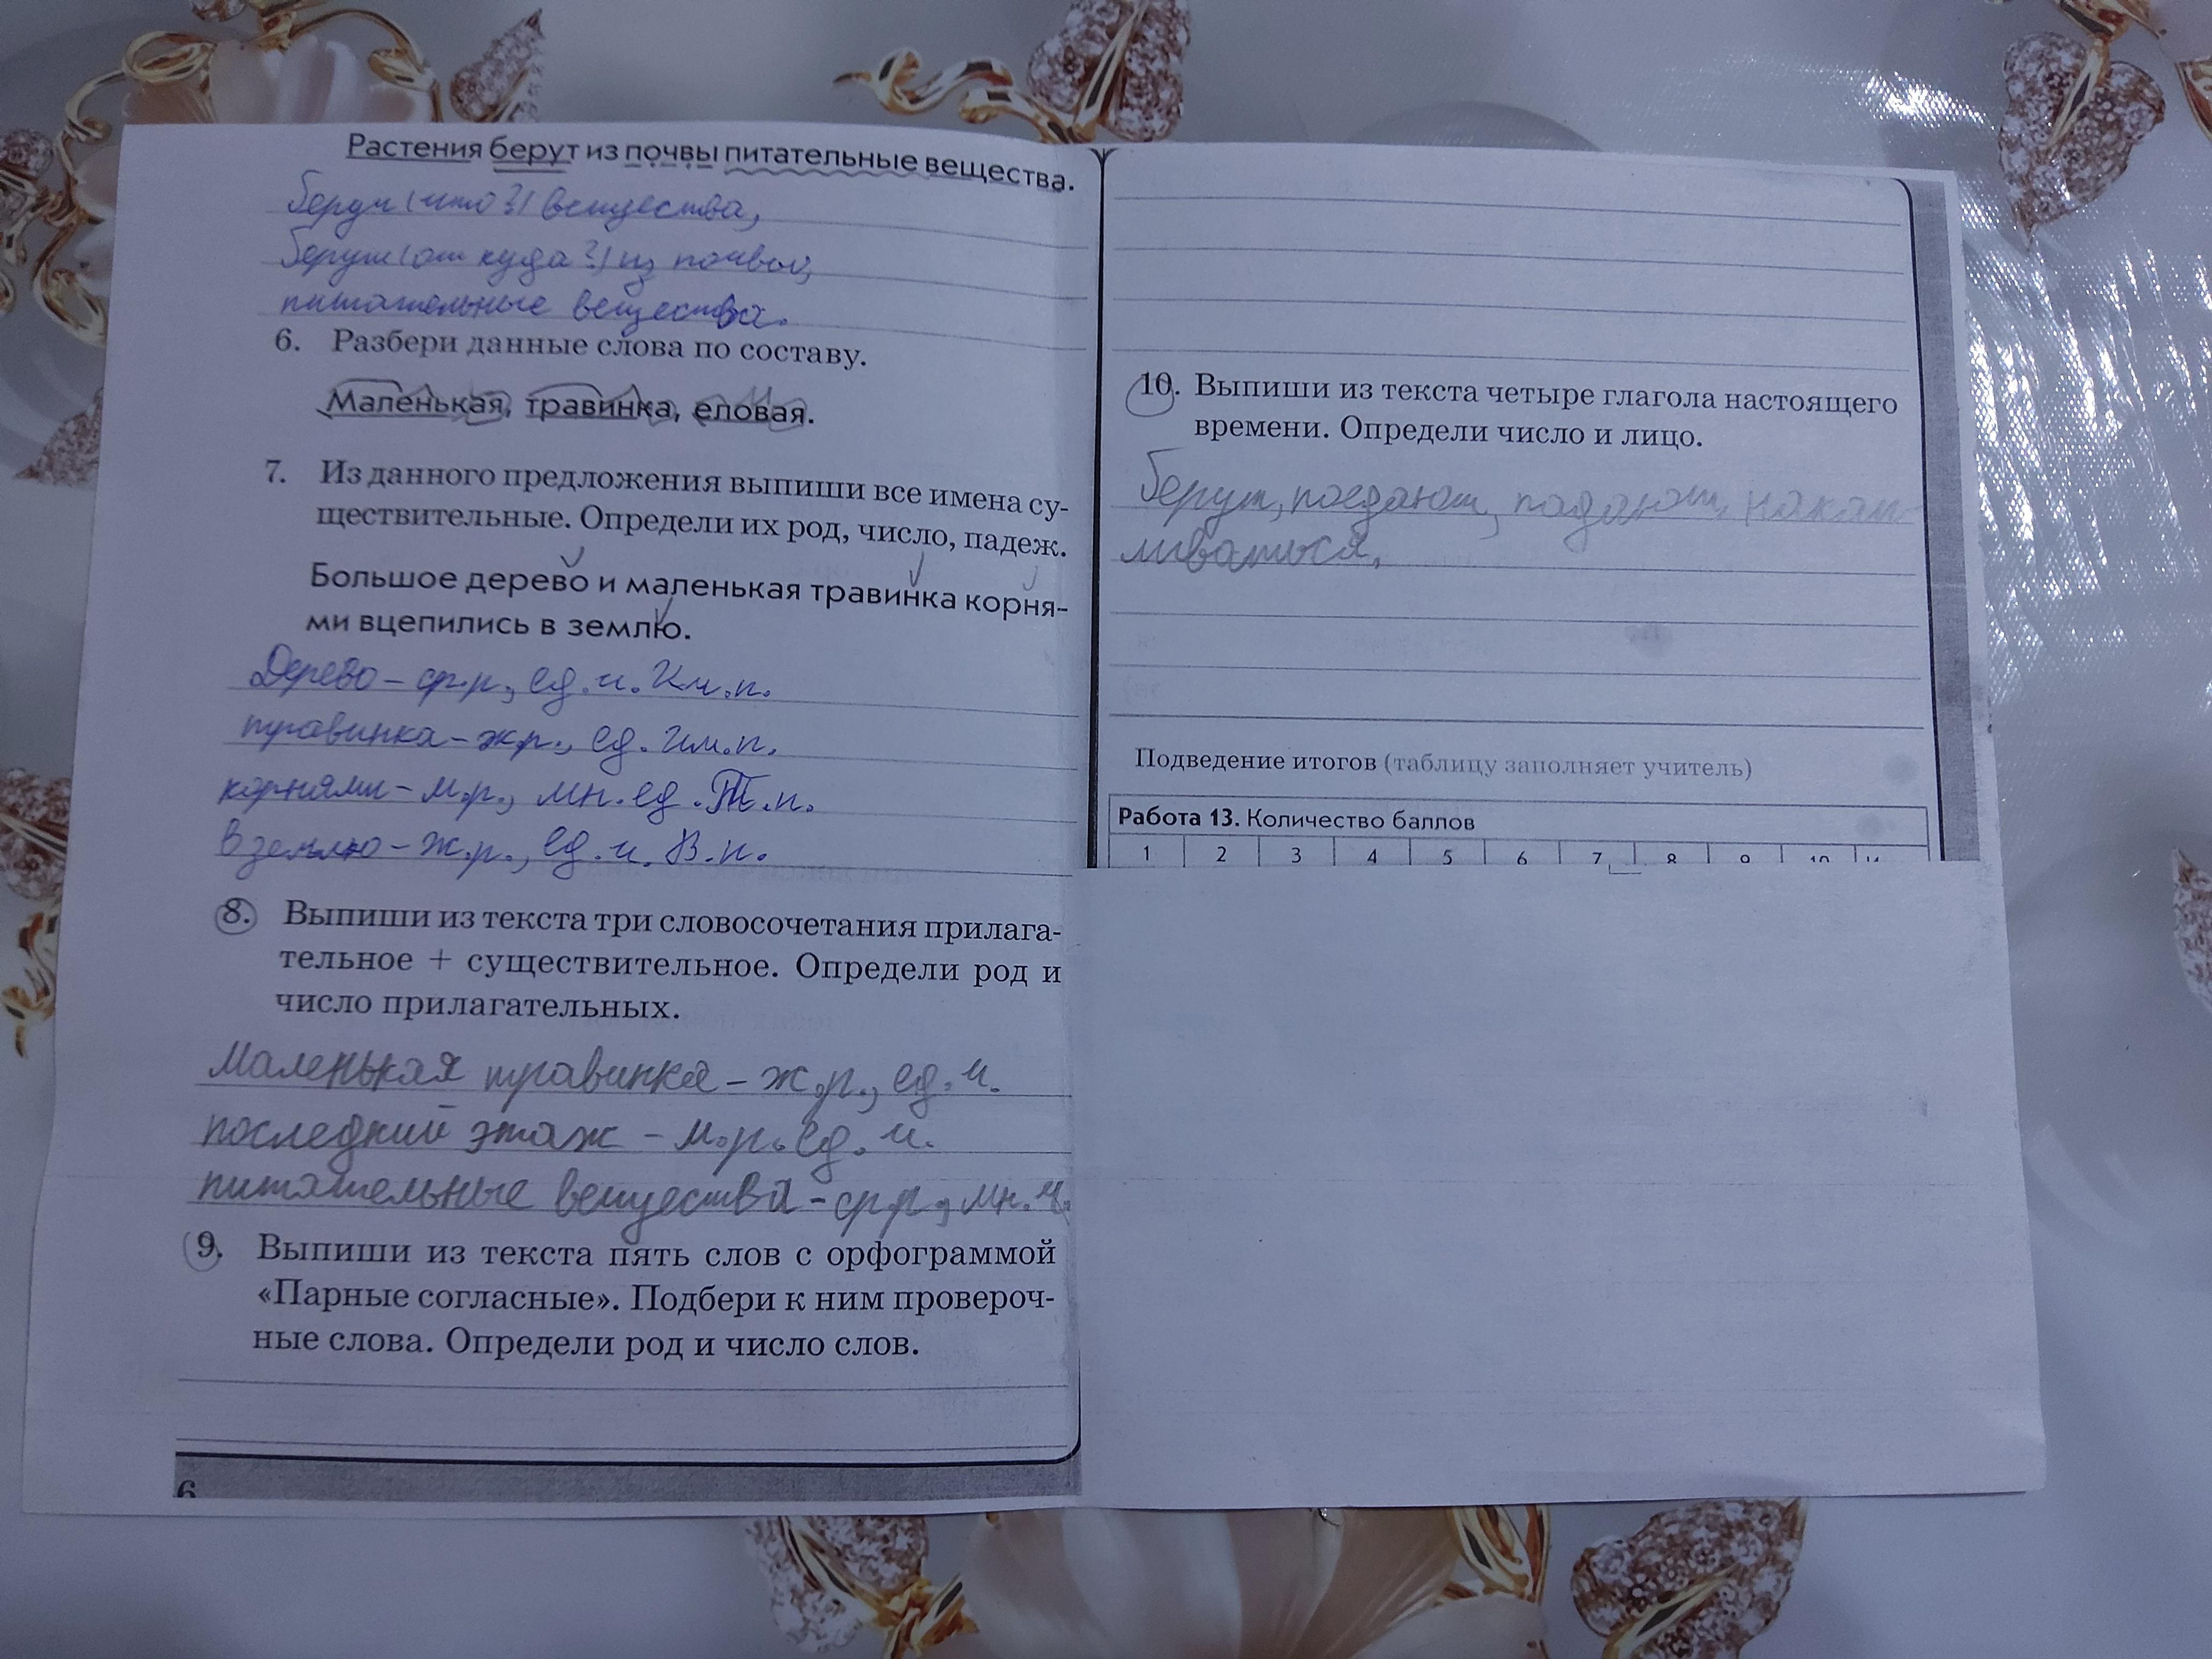 Растения берут из почвы питательные вещества.
берут (что?) вещества,
берут (от куда?) из почвы,
питательные вещества.
6. Разбери данные слова по составу.
Маленькая, травинка, еловая.
7. Из данного предложения выпиши все имена су-
ществительные. Определи их род, число, падеж.
Большое дерево и маленькая травинка корня-
ми вцепились в землю.
Дерево – ср.р., ед.ч. Им.п.
травинка – ж.р., ед. Им.п.
корнями – м.р., мн.ед. Т.п.
в землю – ж.р., ед.ч. В.п.
8. Выпиши из текста три словосочетания прилага-
тельное + существительное. Определи род и
число прилагательных.
Маленькая травинка – ж.р., ед.ч.
последний этаж – м.р. ед.ч.
питательные вещества – ср.р., мн.ч.
9. Выпиши из текста пять слов с орфограммой
«Парные согласные». Подбери к ним провероч-
ные слова. Определи род и число слов.
6
10. Выпиши из текста четыре глагола настоящего
времени. Определи число и лицо.
берут, поедают, падают, накап-
ливаться.
Подведение итогов (таблицу заполняет учитель)
Работа 13. Количество баллов
1 2 3 4 5 6 7 8 9 10